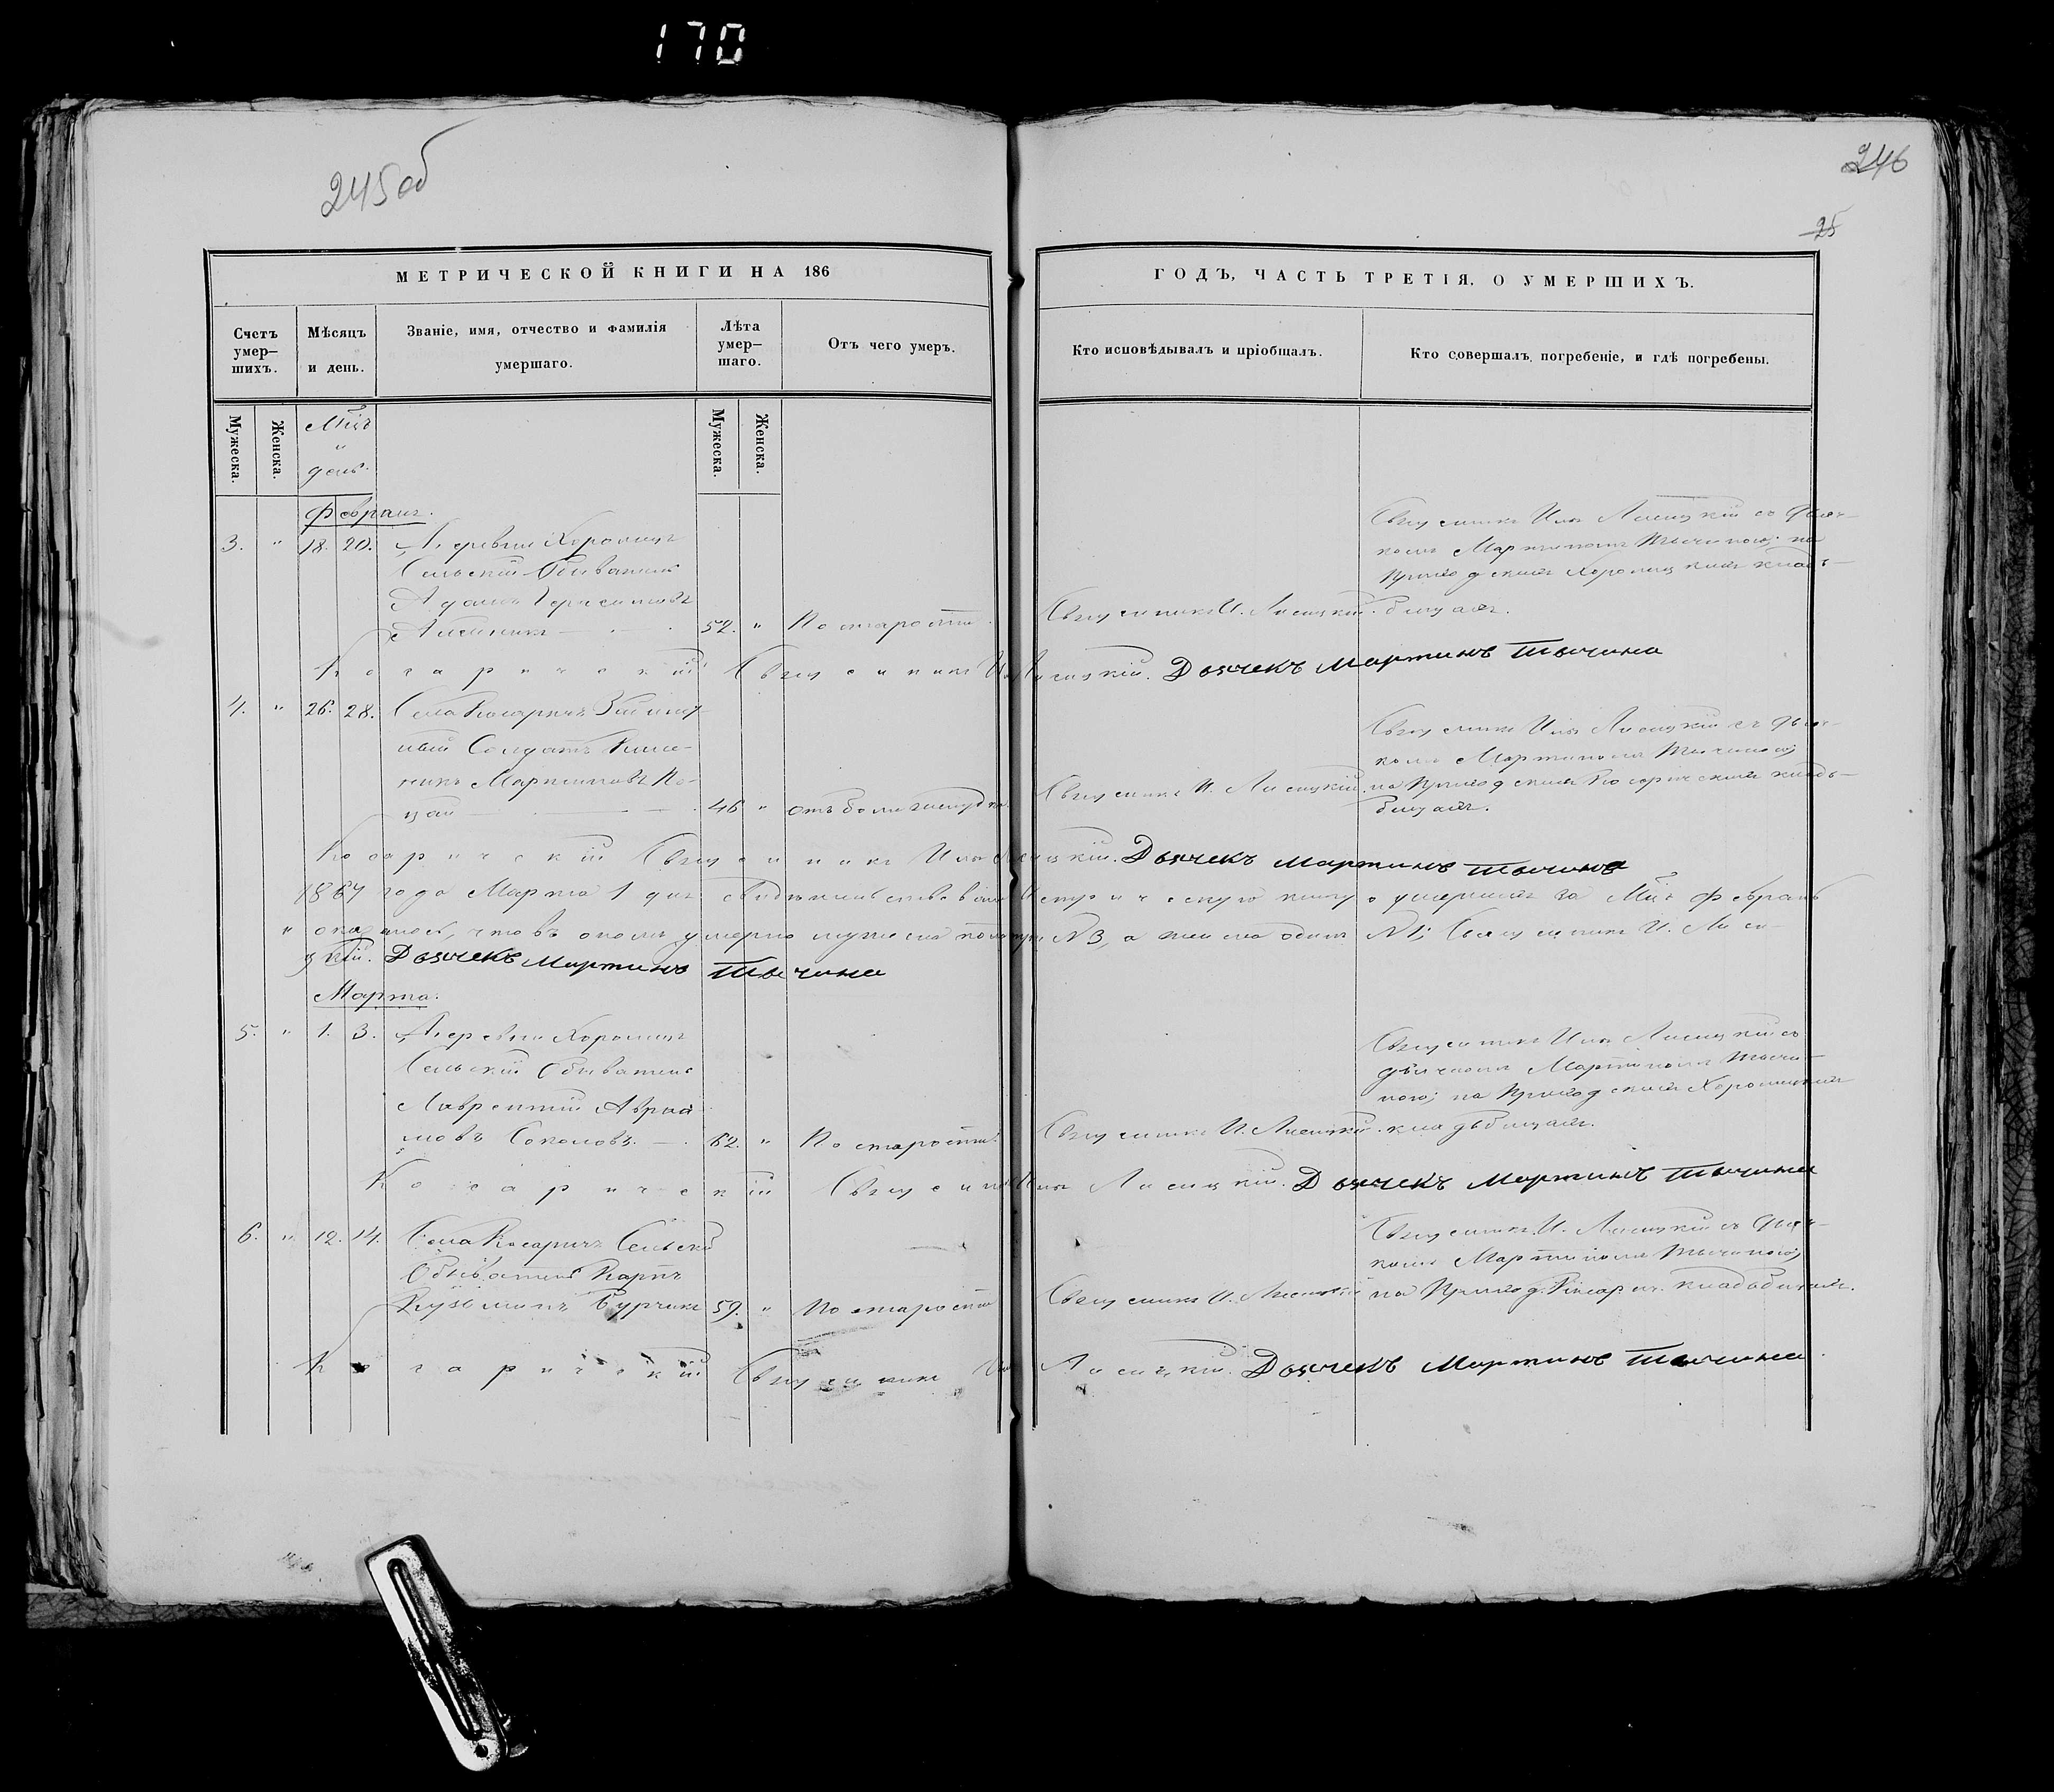 170
245об
246
25
МЕТРИЧЕСКОЙ КНИГИ НА 186
ГОДЪ, ЧАСТЬ ТРЕТІЯ, О УМЕРШИХЪ.
Счетъ умер–шихъ.
Мѣсяцъ и день.
Званіе, имя, отчество и фамилія умершаго.
Лѣта умер–шаго.
Отъ чего умеръ.
Кто исповѣдывалъ и пріобщалъ.
Кто совершалъ погребеніе, и гдѣ погребены.
Мужеска.
Женска.
Мцъ
и
день.
Мужеска.
Женска.
Февраль.
3. " 18. 20. Деревни Хоромецъ
Сельскій Обыватель
Адамъ Герасимовъ
52. " По старости.
Священникъ И. Лисицкій.
Священникъ Илья Лисицкій съ дьяч–
комъ Мартиномъ Тычиною; на
приходскихъ Хоромецкихъ кладъ–
бищахъ.
Косаричскій Священникъ Илья Лисицкій. Дьячекъ Мартинъ Тычина
4. " 26. 28. Села Косаричъ
Солдатъ
Мартиновъ Ко–
цай 46 " отъ боли желудка
Священникъ И. Лисицкій.
Священникъ Илья Лисицкій съ дьяч–
комъ Мартиномъ Тычиною;
на приходскихъ Косаричскихъ кладъ–
бищахъ.
Косаричскій Священникъ Илья Лисицкій. Дьячекъ Мартинъ Тычина
1864 года Марта 1 дня свидѣтельствовали Метрическую книгу о умершихъ за Мцъ Февраль
и оказалось, что въ ономъ умерло мужеска пола три №3, а женска одинъ №1; Священникъ И. Лиси–
цкій. Дьячекъ Мартинъ Тычина
Марта.
5. " 1. 3. Деревни Хоромецъ
Сельскій Обыватель
Лаврентій Авраа
мовъ Соколовъ. 62. " По старости.
Священникъ И. Лисицкій.
Священникъ Илья Лисицкій съ
дьячкомъ Мартиномъ Тычи–
ною; на приходскихъ Хоромецкихъ
кладъбищахъ.
Косаричскій Священникъ Илья Лисицкій. Дьячекъ Мартинъ Тычина
6. " 12. 14. Села Косаричъ Сельскій
Обыватель Карпъ
Кузьминъ Бурчикъ 59. " По старости
Священникъ И. Лисицкій
Священникъ И. Лисицкій съ дьяч–
комъ Мартиномъ Тычиною;
на приход. Косарич. кладъбищахъ.
Косаричскій Священникъ Илья Лисицкій. Дьячекъ Мартинъ Тычина